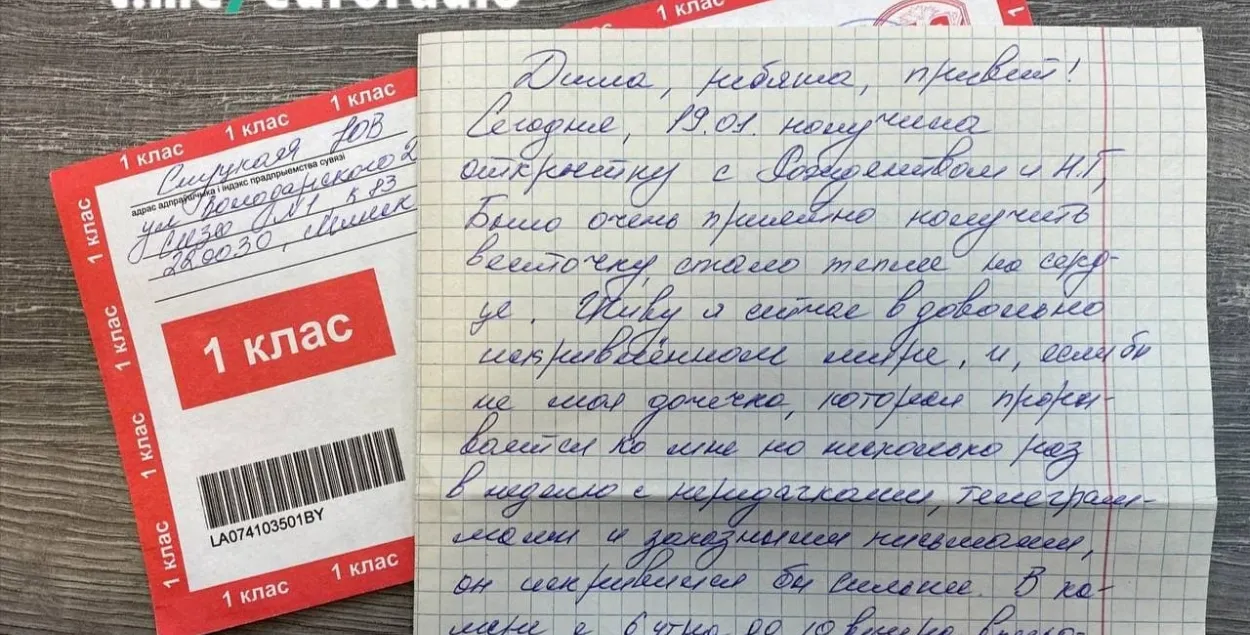 t.me/euroradio
1 клас
1 клас
1 клас
1 клас
1 клас
1 клас
1 клас
1 клас
1 клас
Слуцкая ЮВ
адрас адпраўшчыка і індэкс прадпрыемства сувязі
ул Володарского 2
сизо №1 к 83
220030, Минск
1 клас
LA074103501BY
1 клас
1 клас
Дима, ребята, привет!
Сегодня, 19.01. получила
открытку с Рождеством и Н.Г,
Было очень приятно получить
весточку, стало теплее на серд-
це. Живу я сейчас в довольно
искривлённом мире, и, если бы
не моя дочечка, которая проры-
вается ко мне по несколько раз
в неделю с передачками, телеграм-
мами и заказными письмами,
он искривился бы сильнее. В ка-
мере с 6 утра до 10 вечера